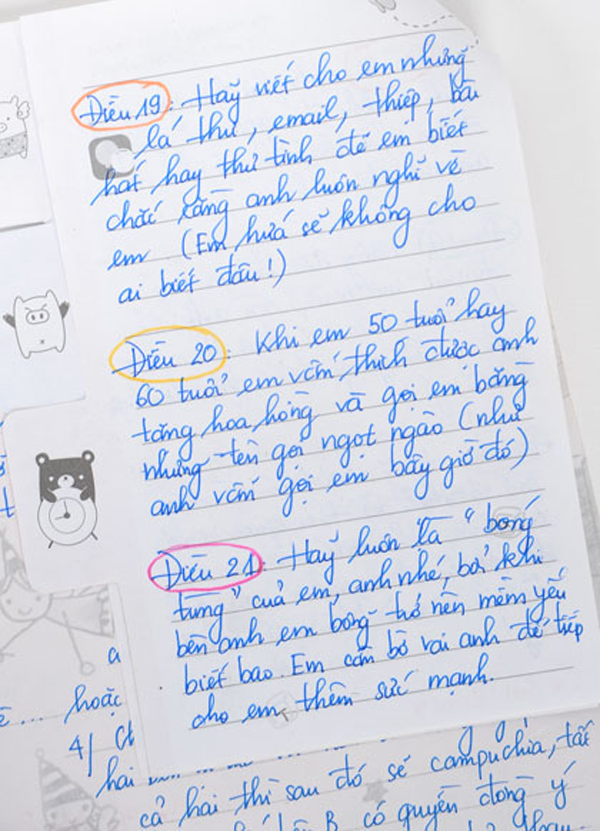 Điều 19: Hãy viết cho em những
lá thư, email, thiệp, bài
hát hay thư tình để em biết
chắc rằng anh luôn nghĩ về
em (Em hứa sẽ không cho
ai biết đâu!)
Điều 20: Khi em 50 tuổi hay
60 tuổi em vẫn thích được anh
tặng hoa hồng và gọi em bằng
những tên gọi ngọt ngào (như
anh vẫn gọi em bây giờ đó)
Điều 21: Hãy luôn là "bóng
tùng" của em, anh nhé, bởi khi
bên anh em bỗng trở nên mềm yếu
biết bao. Em cần bờ vai anh để tiếp
cho em thêm sức mạnh.
a
hoặc
4/
hai
cả hai thì sau đó sẽ campuchia, tất
B có quyền đồng ý